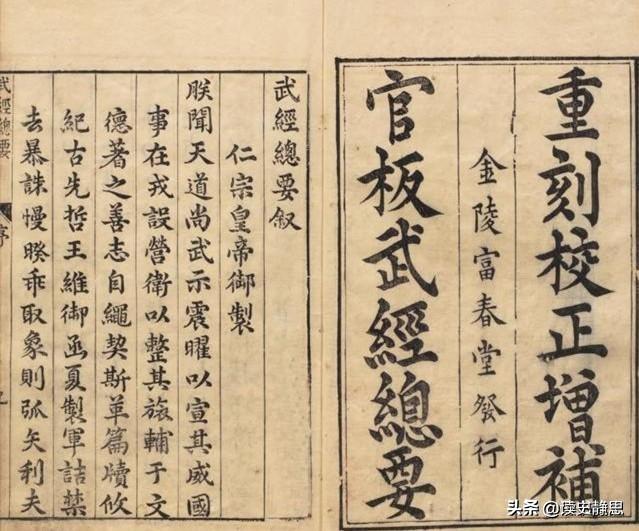 重刻校正增補
金陵富春堂發行
官板武經總要
武經總要叙
仁宗皇帝御製
朕聞天道尚武示震曜以宣其威國
事在戎設營衛以整其旅輔于文
德著之善志自繩契斯革篇牘攸
紀古先哲王維御函夏製軍詰禁
去暴誅慢暌乖取象則弧矢利夫
武經總要
序
头条 @陵史静思